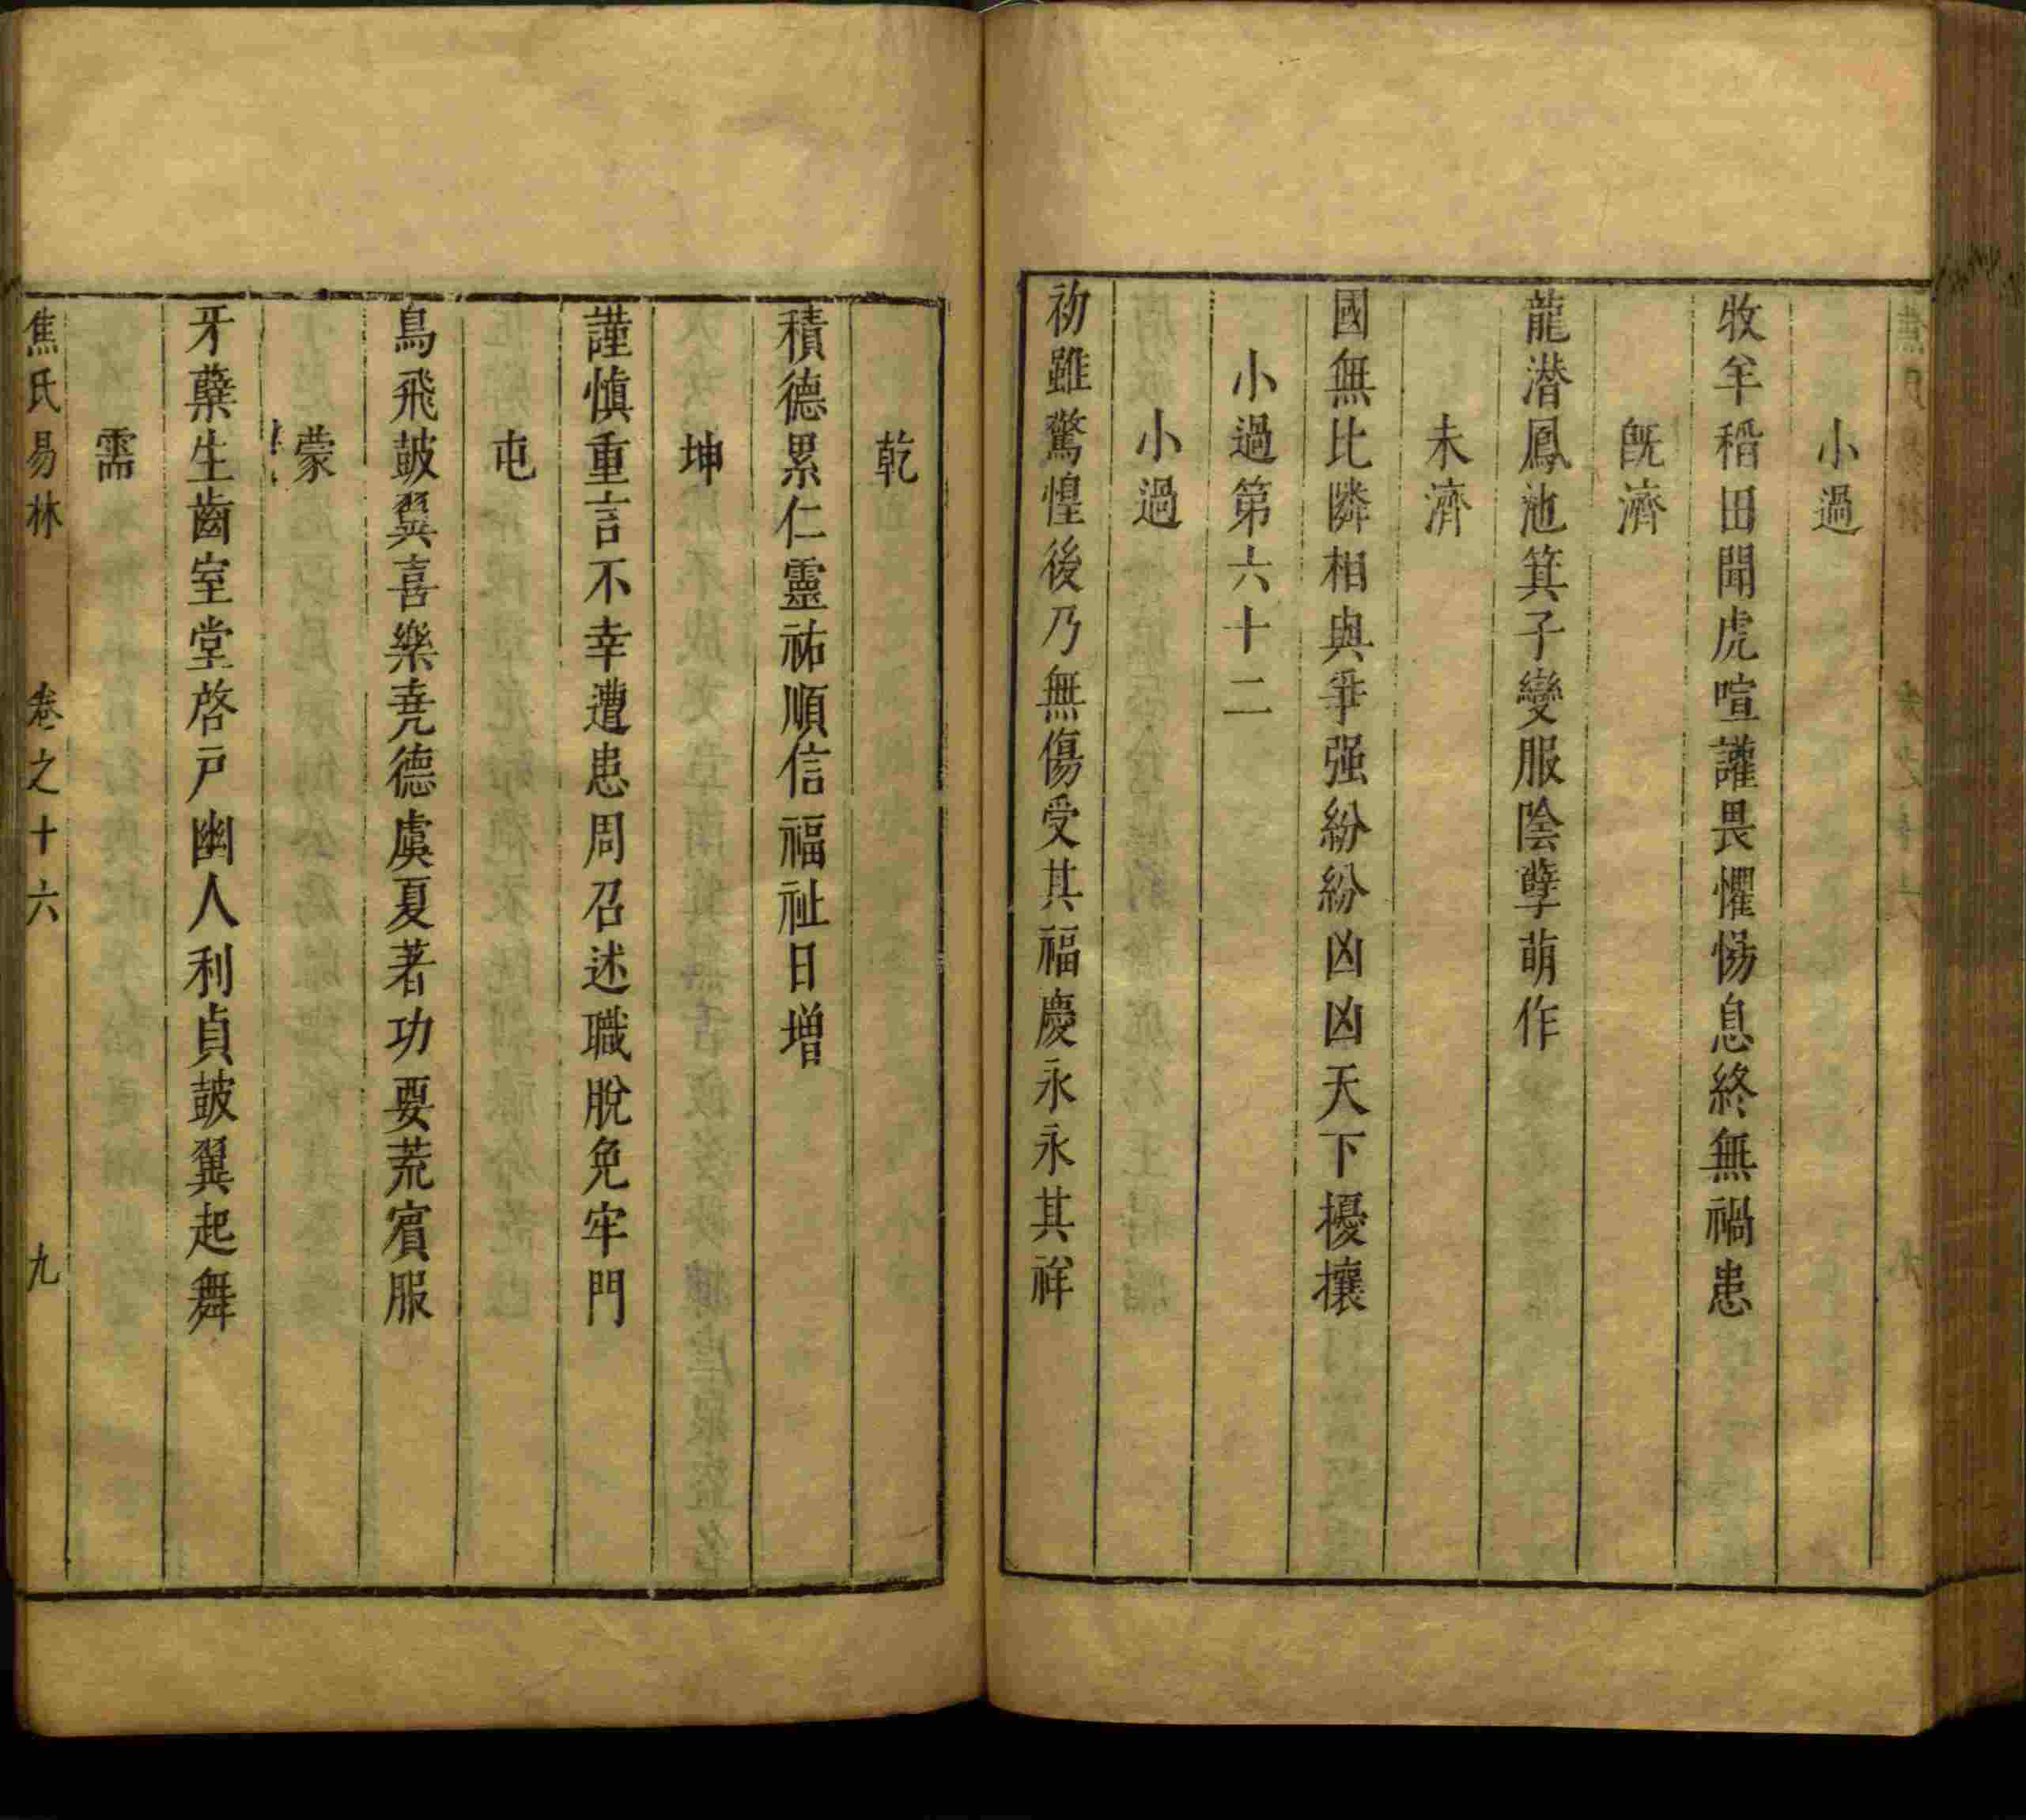 小過
牧羊稻田聞虎喧讙畏懼惕息終無禍患
旣濟
龍潛鳳池箕子變服陰孽萌作
未濟
國無比隣相與爭强紛紛凶凶天下擾攘
小過第六十二
小過
初雖驚惶後乃無傷受其福慶永永其祥
乾
積德累仁靈祐順信福祉日增
坤
謹愼重言不幸遭患周召述職脫免牢門
屯
鳥飛皷翼喜樂堯德虞夏著功要荒賓服
蒙
牙蘖生齒室堂啓戸幽人利貞皷翼起舞
需
焦氏易林 卷之十六 九